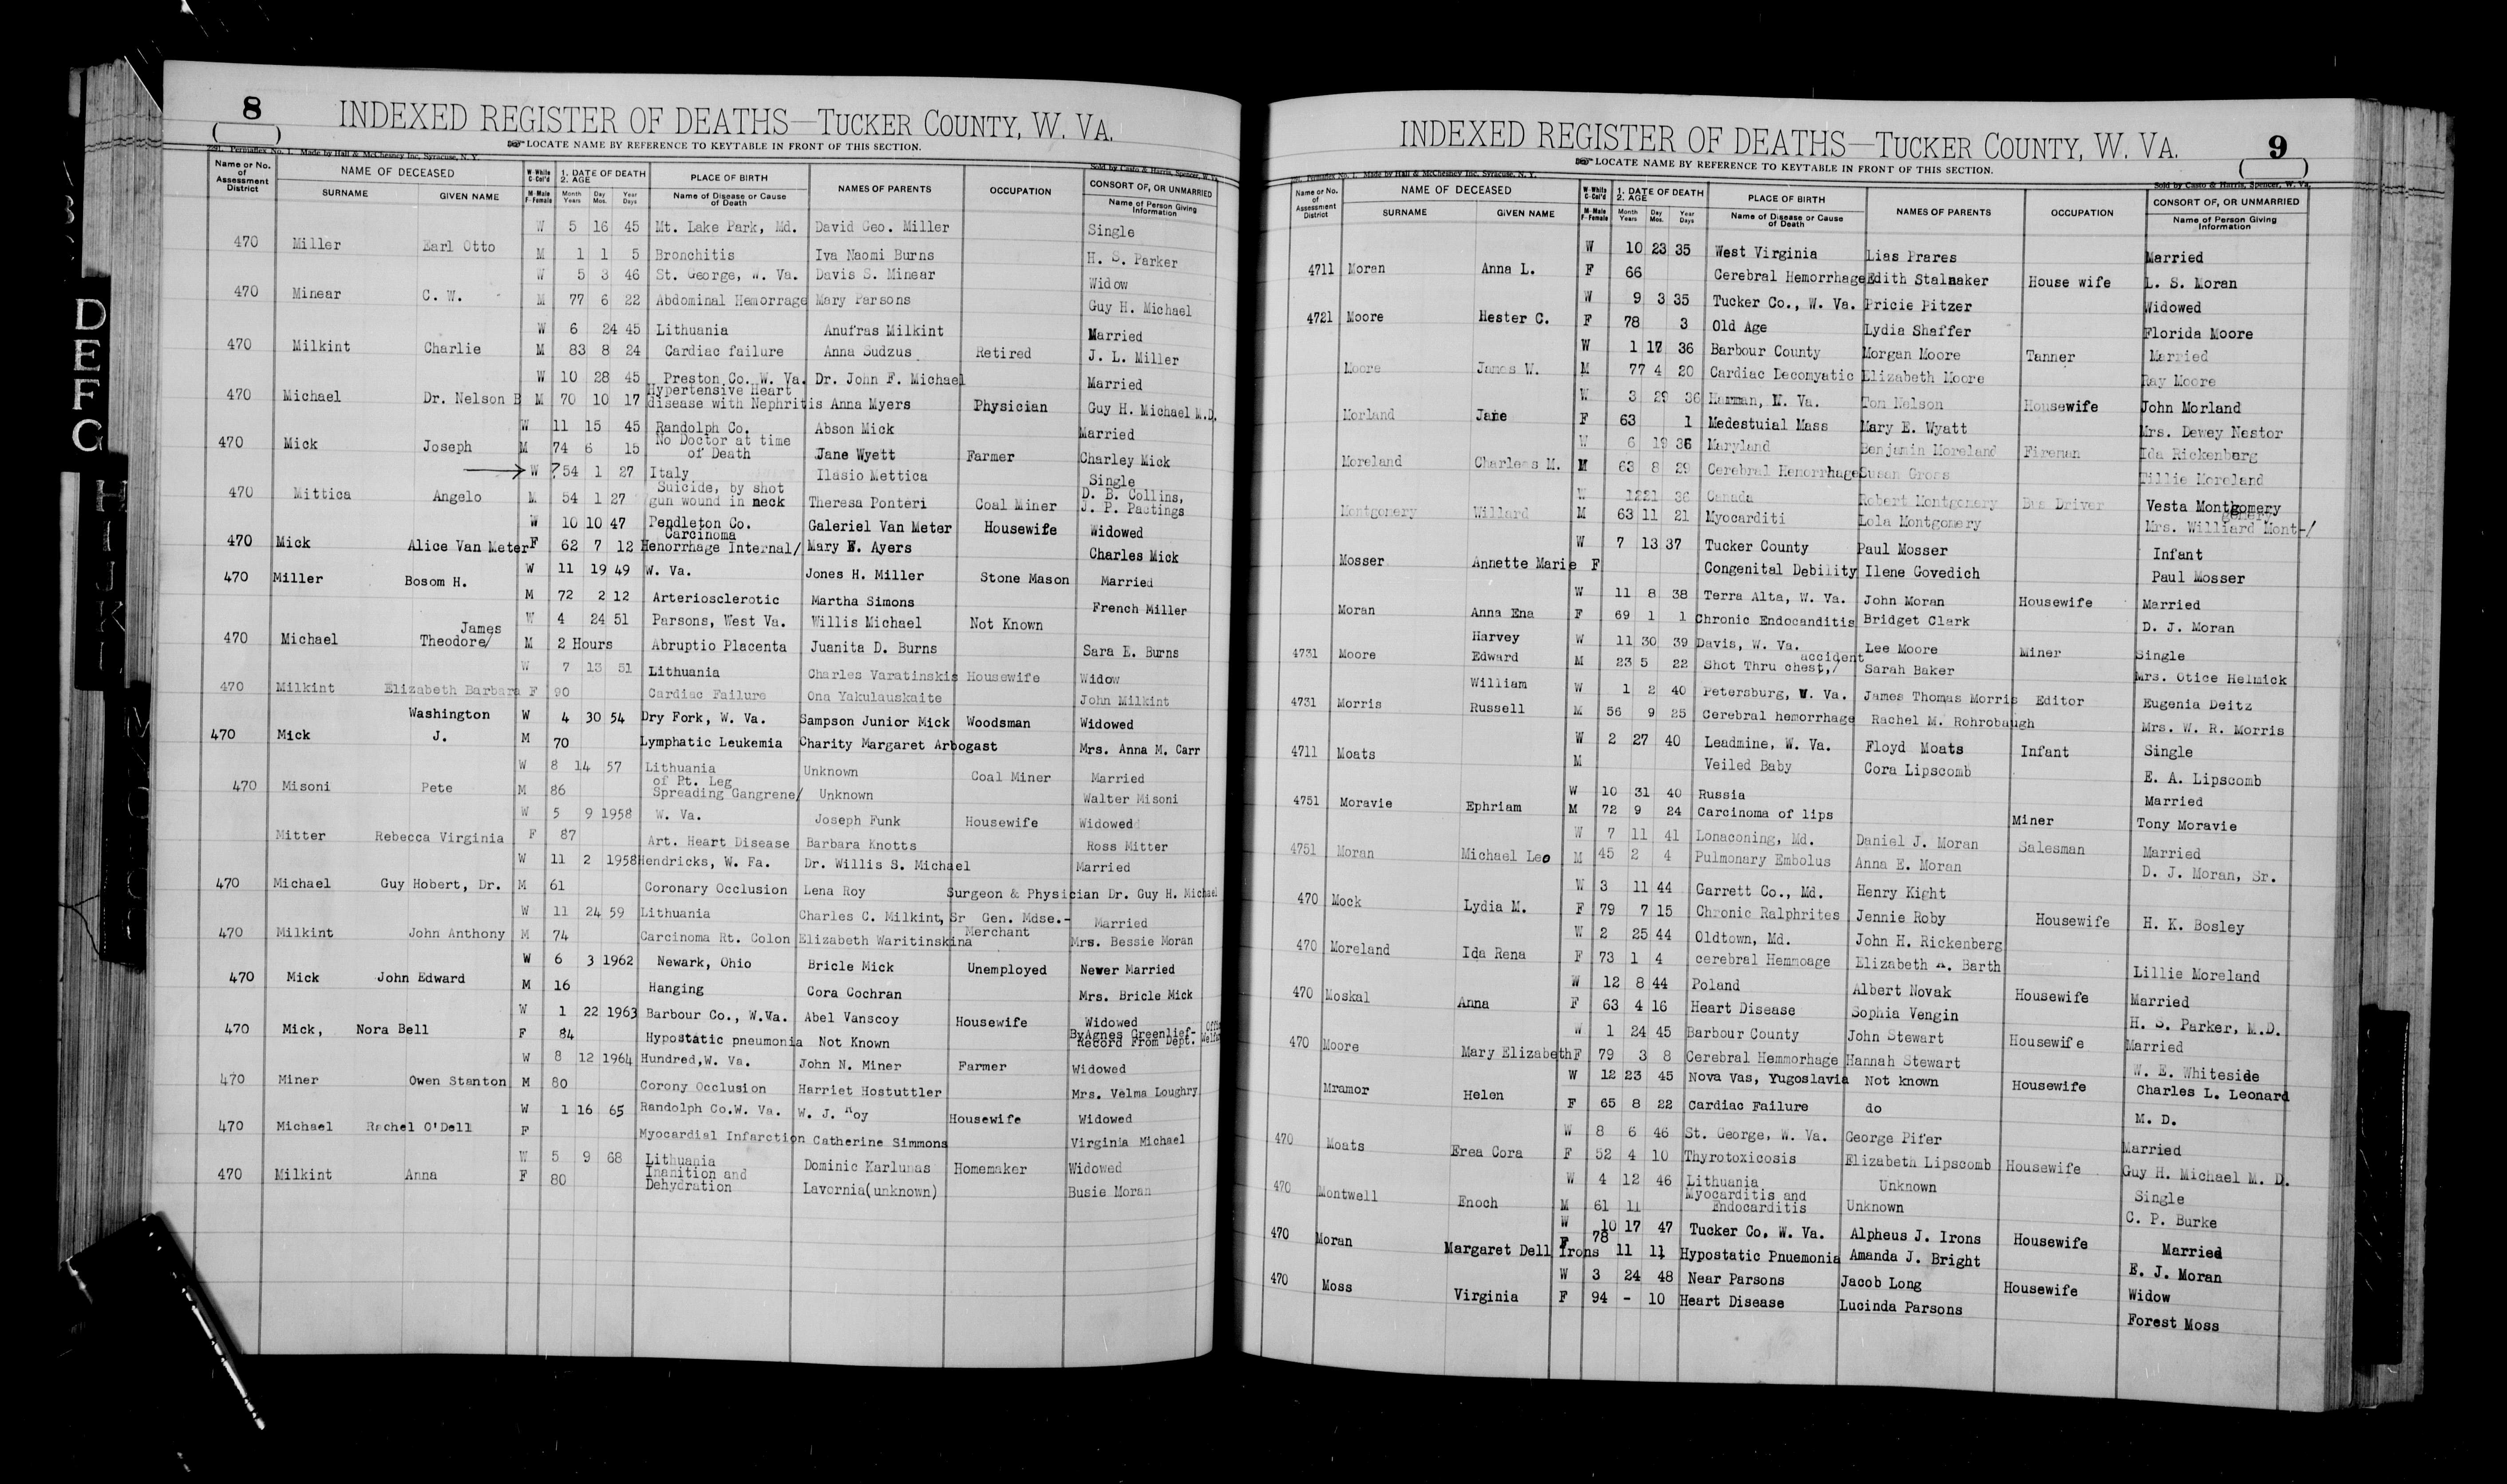 8
INDEXED REGISTER OF DEATHS—TUCKER COUNTY, W. VA.
LOCATE NAME BY REFERENCE TO KEYTABLE IN FRONT OF THIS SECTION.
Made by Hall & McChesney Inc. Syracuse, N. Y. Sold by Casto & Harris, Spencer, W. Va.
Name or No. of Assessment District NAME OF DECEASED W-White C-Col'd 1. DATE OF DEATH 2. AGE PLACE OF BIRTH NAMES OF PARENTS OCCUPATION CONSORT OF, OR UNMARRIED
SURNAME GIVEN NAME M-Male F-Female Month Years Day Mos. Year Days Name of Disease or Cause of Death Name of Person Giving Information
W 5 16 45 Mt. Lake Park, Md. David Geo. Miller Single
470 Miller Earl Otto M 1 1 5 Bronchitis Iva Naomi Burns H. S. Parker
W 5 3 46 St. George, W. Va. Davis S. Minear Widow
470 Minear C. W. M 77 6 22 Abdominal Hemorrage Mary Parsons Guy H. Michael
W 6 24 45 Lithuania Anufras Milkint Married
470 Milkint Charlie M 83 8 24 Cardiac failure Anna Sudzus Retired J. L. Miller
W 10 28 45 Preston Co. W. Va. Dr. John F. Michael Married
470 Michael Dr. Nelson B M 70 10 17 Hypertensive Heart disease with Nephritis Anna Myers Physician Guy H. Michael M.D.
W 11 15 45 Randolph Co. Abson Mick Married
470 Mick Joseph M 74 6 15 No Doctor at time of Death Jane Wyett Farmer Charley Mick
W ?54 1 27 Italy Ilasio Mettica Single
470 Mittica Angelo M 54 1 27 Suicide, by shot gun wound in neck Theresa Ponteri Coal Miner D. B. Collins, J. P. Pastings
W 10 10 47 Pendleton Co. Galeriel Van Meter Housewife Widowed
470 Mick Alice Van Meter F 62 7 12 Carcinoma Henorrhage Internal/ Mary E. Ayers Charles Mick
W 11 19 49 W. Va. Jones H. Miller Stone Mason Married
470 Miller Bosom H. M 72 2 12 Arteriosclerotic Martha Simons French Miller
W 4 24 51 Parsons, West Va. Willis Michael Not Known
470 Michael James Theodore/ M 2 Hours Abruptio Placenta Juanita D. Burns Sara E. Burns
W 7 13 51 Lithuania Charles Varatinskis Housewife Widow
470 Milkint Elizabeth Barbara F 90 Cardiac Failure Ona Yakulauskaite John Milkint
Washington W 4 30 54 Dry Fork, W. Va. Sampson Junior Mick Woodsman Widowed
470 Mick J. M 70 Lymphatic Leukemia Charity Margaret Arbogast Mrs. Anna M. Carr
W 8 14 57 Lithuania Unknown Coal Miner Married
470 Misoni Pete M 86 of Pt. Leg Spreading Gangrene/ Unknown Walter Misoni
W 5 9 1958 W. Va. Joseph Funk Housewife Widowed
Mitter Rebecca Virginia F 87 Art. Heart Disease Barbara Knotts Ross Mitter
W 11 2 1958 Hendricks, W. Fa. Dr. Willis S. Michael Married
470 Michael Guy Hobert, Dr. M 61 Coronary Occlusion Lena Roy Surgeon & Physician Dr. Guy H. Michael
W 11 24 59 Lithuania Charles C. Milkint, Sr Gen. Mdse.- Merchant Married
470 Milkint John Anthony M 74 Carcinoma Rt. Colon Elizabeth Waritinskina Mrs. Bessie Moran
W 6 3 1962 Newark, Ohio Bricle Mick Unemployed Never Married
470 Mick John Edward M 16 Hanging Cora Cochran Mrs. Bricle Mick
W 1 22 1963 Barbour Co., W.Va. Abel Vanscoy Housewife Widowed
470 Mick, Nora Bell F 84 Hypostatic pneumonia Not Known By Agnes Greenlief- Record From Dept.
W 8 12 1964 Hundred,W. Va. John N. Miner Farmer Widowed
470 Miner Owen Stanton M 80 Corony Occlusion Harriet Hostuttler Mrs. Velma Loughry
W 1 16 65 Randolph Co.W. Va. W. J. Roy Housewife Widowed
470 Michael Rachel O'Dell F Myocardial Infarction Catherine Simmons Virginia Michael
W 5 9 68 Lithuania Dominic Karlunas Homemaker Widowed
470 Milkint Anna F 80 Inanition and Dehydration Lavornia(unknown) Busie Moran
D
E
F
G
H
I
J
K
9
INDEXED REGISTER OF DEATHS—TUCKER COUNTY, W. VA.
LOCATE NAME BY REFERENCE TO KEYTABLE IN FRONT OF THIS SECTION.
Made by Hall & McChesney Inc. Syracuse, N. Y. Sold by Casto & Harris, Spencer, W. Va.
Name or No. of Assessment District NAME OF DECEASED W-White C-Col'd 1. DATE OF DEATH 2. AGE PLACE OF BIRTH NAMES OF PARENTS OCCUPATION CONSORT OF, OR UNMARRIED
SURNAME GIVEN NAME M-Male F-Female Month Years Day Mos. Year Days Name of Disease or Cause of Death Name of Person Giving Information
W 10 23 35 West Virginia Lias Prares Married
4711 Moran Anna L. F 66 Cerebral Hemorrhage Edith Stalnaker House wife L. S. Moran
W 9 3 35 Tucker Co., W. Va. Pricie Pitzer Widowed
4721 Moore Hester C. F 78 3 Old Age Lydia Shaffer Florida Moore
W 1 17 36 Barbour County Morgan Moore Tanner Married
Moore James W. M 77 4 20 Cardiac Decomyatic Elizabeth Moore Ray Moore
W 3 29 36 Harman, W. Va. Tom Nelson Housewife John Morland
Morland Jane F 63 1 Medestuial Mass Mary E. Wyatt Mrs. Dewey Nestor
W 6 19 36 Maryland Benjamin Moreland Fireman Ida Rickenberg
Moreland Charles M. M 63 8 29 Cerebral Hemorrhage Susan Gross Tillie Moreland
W 12 21 36 Canada Robert Montgomery Bus Driver Vesta Montgomery
Montgomery Willard M 63 11 21 Myocarditi Lola Montgomery Mrs. Williard Mont-/ gomery
W 7 13 37 Tucker County Paul Mosser Infant
Mosser Annette Marie F Congenital Debility Ilene Govedich Paul Mosser
W 11 8 38 Terra Alta, W. Va. John Moran Housewife Married
Moran Anna Ena F 69 1 1 Chronic Endocanditis Bridget Clark D. J. Moran
Harvey W 11 30 39 Davis, W. Va. Lee Moore Miner Single
4731 Moore Edward M 23 5 22 Shot Thru chest,/ accident Sarah Baker Mrs. Otice Helmick
William W 1 2 40 Petersburg, W. Va. James Thomas Morris Editor Eugenia Deitz
4731 Morris Russell M 56 9 25 Cerebral hemorrhage Rachel M. Rohrobaugh Mrs. W. R. Morris
W 2 27 40 Leadmine, W. Va. Floyd Moats Infant Single
4711 Moats M Veiled Baby Cora Lipscomb E. A. Lipscomb
W 10 31 40 Russia Married
4751 Moravie Ephriam M 72 9 24 Carcinoma of lips Miner Tony Moravie
W 7 11 41 Lonaconing, Md. Daniel J. Moran Salesman Married
4751 Moran Michael Leo M 45 2 4 Pulmonary Embolus Anna E. Moran D. J. Moran, Sr.
W 3 11 44 Garrett Co., Md. Henry Kight
470 Mock Lydia M. F 79 7 15 Chronic Ralphrites Jennie Roby Housewife H. K. Bosley
W 2 25 44 Oldtown, Md. John H. Rickenberg
470 Moreland Ida Rena F 73 1 4 cerebral Hemmoage Elizabeth A. Barth Lillie Moreland
W 12 8 44 Poland Albert Novak Housewife Married
470 Moskal Anna F 63 4 16 Heart Disease Sophia Vengin H. S. Parker, M.D.
W 1 24 45 Barbour County John Stewart Housewife Married
470 Moore Mary Elizabeth F 79 3 8 Cerebral Hemmorhage Hannah Stewart W. E. Whiteside
W 12 23 45 Nova Vas, Yugoslavia Not known Housewife Charles L. Leonard
Mramor Helen F 65 8 22 Cardiac Failure do M. D.
W 8 6 46 St. George, W. Va. George Pifer Married
470 Moats Erea Cora F 52 4 10 Thyrotoxicosis Elizabeth Lipscomb Housewife Guy H. Michael M. D.
W 4 12 46 Lithuania Unknown Single
470 Montwell Enoch M 61 11 Myocarditis and Endocarditis Unknown C. P. Burke
W 10 17 47 Tucker Co, W. Va. Alpheus J. Irons Housewife Married
470 Moran Margaret Dell Irons F 78 11 11 Hypostatic Pnuemonia Amanda J. Bright E. J. Moran
W 3 24 48 Near Parsons Jacob Long Housewife Widow
470 Moss Virginia F 94 - 10 Heart Disease Lucinda Parsons Forest Moss